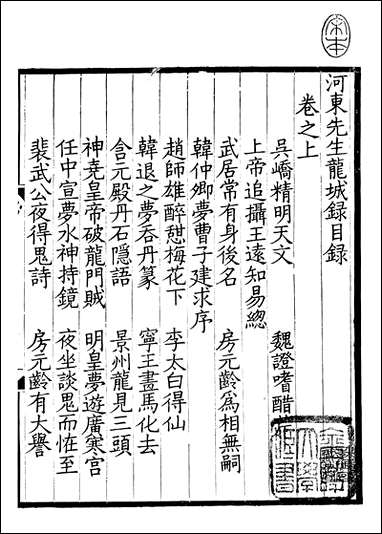 宋本
河東先生龍城録目録
卷之上
吳嶠精明天文 魏證嗜醋
上帝追攝王遠知易總
武居常有身後名 房元齡為相無嗣
韓仲卿夢曹子建求序
趙師雄醉憇梅花下 李太白得仙
韓退之夢吞丹篆 寧王畫馬化去
含元殿丹石隱語 景州龍見三頭
神堯皇帝破龍門賊 明皇夢遊廣寒宮
任中宣夢水神持鏡 夜坐談鬼而恠至
裴武公夜得鬼詩 房元齡有大譽